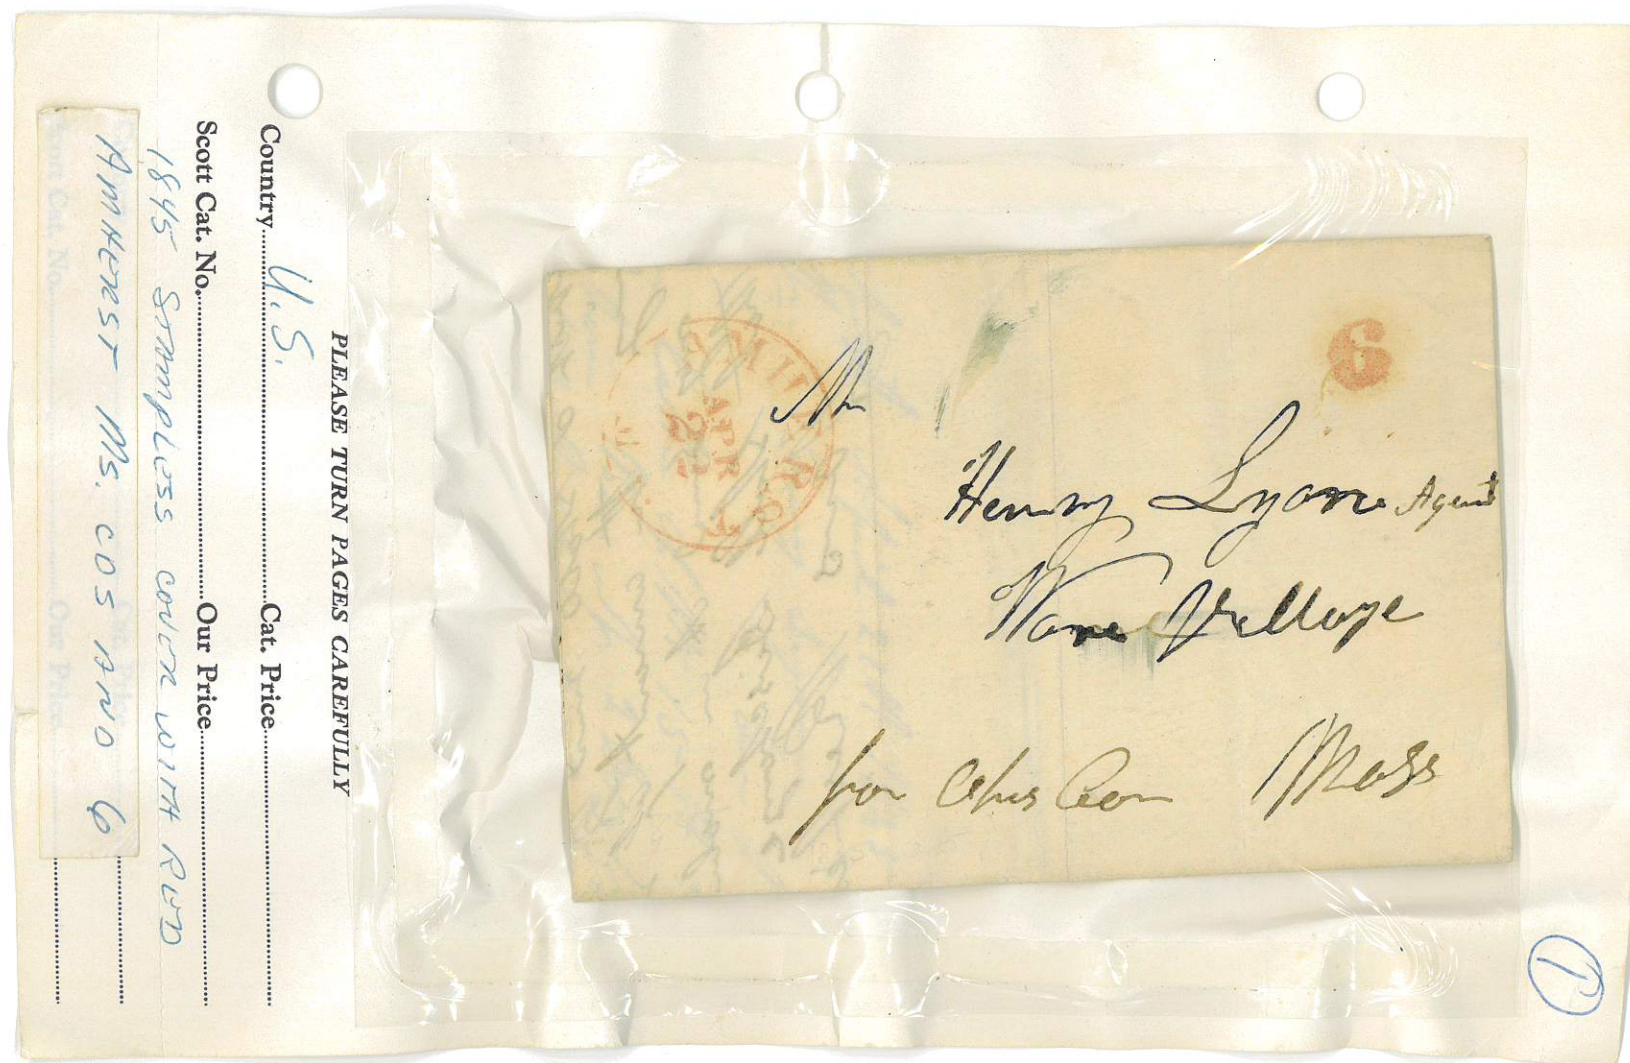 PLEASE TURN PAGES CAREFULLY
Country U.S. Cat. Price
Scott Cat. No. Our Price
1845 STAMPLESS COVER WITH RED
AMHERST MS. CDS AND 6
Scott Cat. No. Our Price
AMHERST
APR
22
6
Mr
Henry Lyon Agent
Ware Village
Mass
1